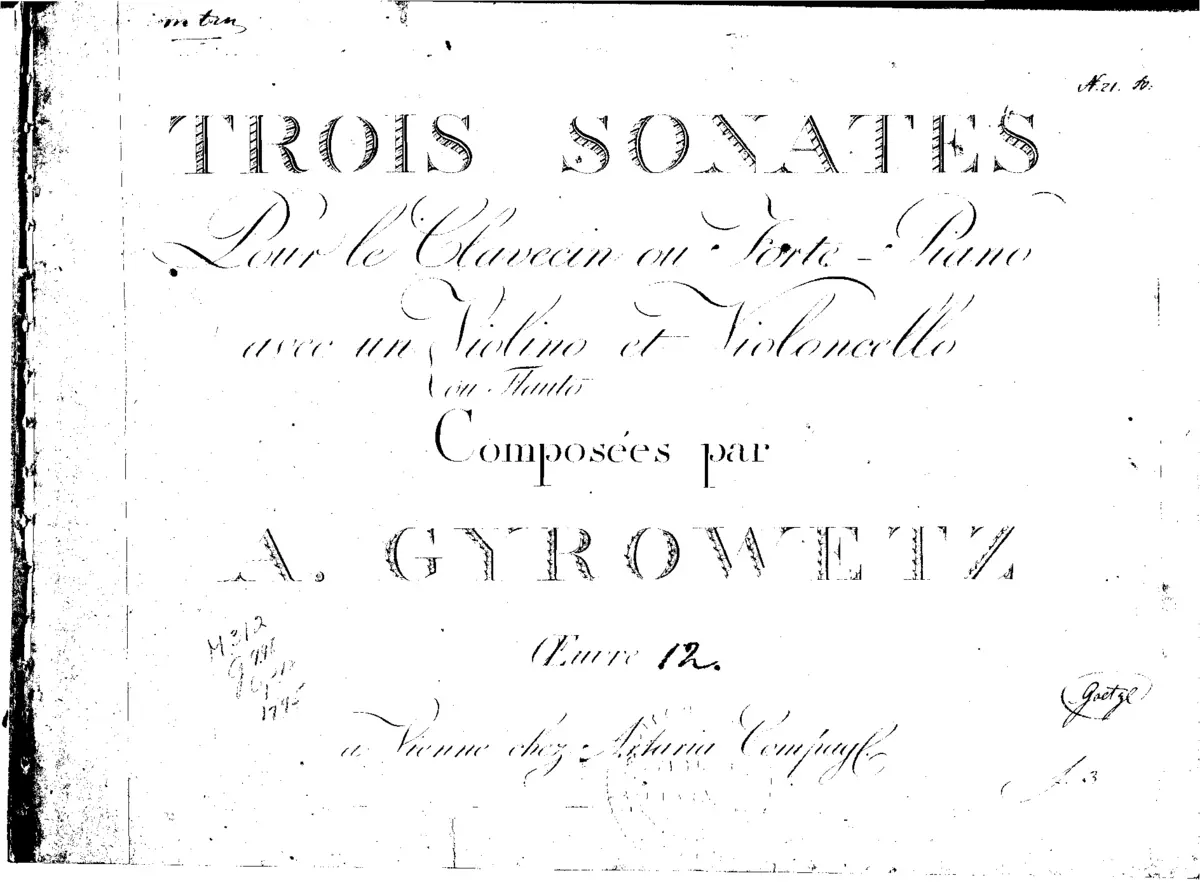 TROIS SONATES
Pour le Clavecin ou Forte-Piano
avec un Violino et Violoncello
ou Flauto
Composées par
A. GYROWETZ
Œuvre 12.
M312
1795
a Vienne chez Artaria Compag